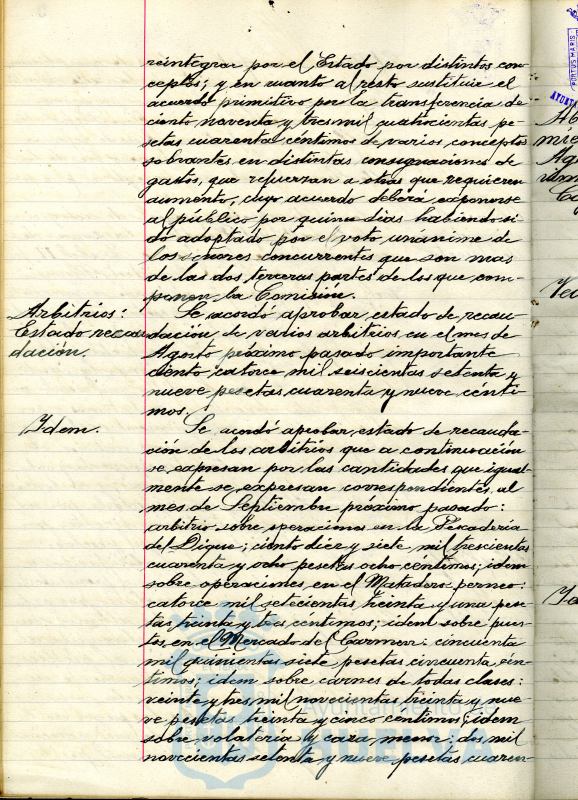 reintegrar por el Estado por distintos con-
ceptos; y en cuanto al resto sustituir el
acuerdo primitivo por la transferencia de
ciento noventa y tres mil, cuatrocientas pe-
setas cuarenta céntimos de varios conceptos
sobrantes en distintas consignaciones de
gastos, que refuerzan a otras que requieren
aumento, cuyo acuerdo deberá exponerse
al público por quince dias habiendo si-
do adoptado por el voto unánime de
los señores concurrentes que son mas
de las dos terceras partes de los que com-
ponen la Comisión.
Arbitrios:
Estado recau-
dación.
Se acordó aprobar estado de recau-
dación de varios arbitrios en el mes de
Agosto próximo pasado importante
ciento catorce mil seiscientas setenta y
nueve pesetas cuarenta y nueve cénti-
mos.
Idem.
Se acordó aprobar estado de recauda-
ción de los arbitrios que a continuación
se expresan por las cantidades que igual-
mente se expresan correspondientes al
mes de Septiembre próximo pasado:
arbitrio sobre operaciones en la Pescadería
del Dique; ciento diez y siete mil trescientas
cuarenta y ocho pesetas ocho centimos; idem
sobre operaciones en el Matadero perneo:
catorce mil setecientas treinta y una pese-
tas treinta y tres céntimos; idem sobre pues-
tos en el Mercado del Carmen: cincuenta
mil quinientas siete pesetas cincuenta cén-
timos; idem sobre carnes de todas clases:
veinte y tres mil novecientas treinta y nue-
ve pesetas treinta y cinco centimos; idem
sobre volatería y caza menor: dos mil
novecientas setenta y nueve pesetas cuaren-
Ayuntamiento de
HUELVA
PORTUS MARIS